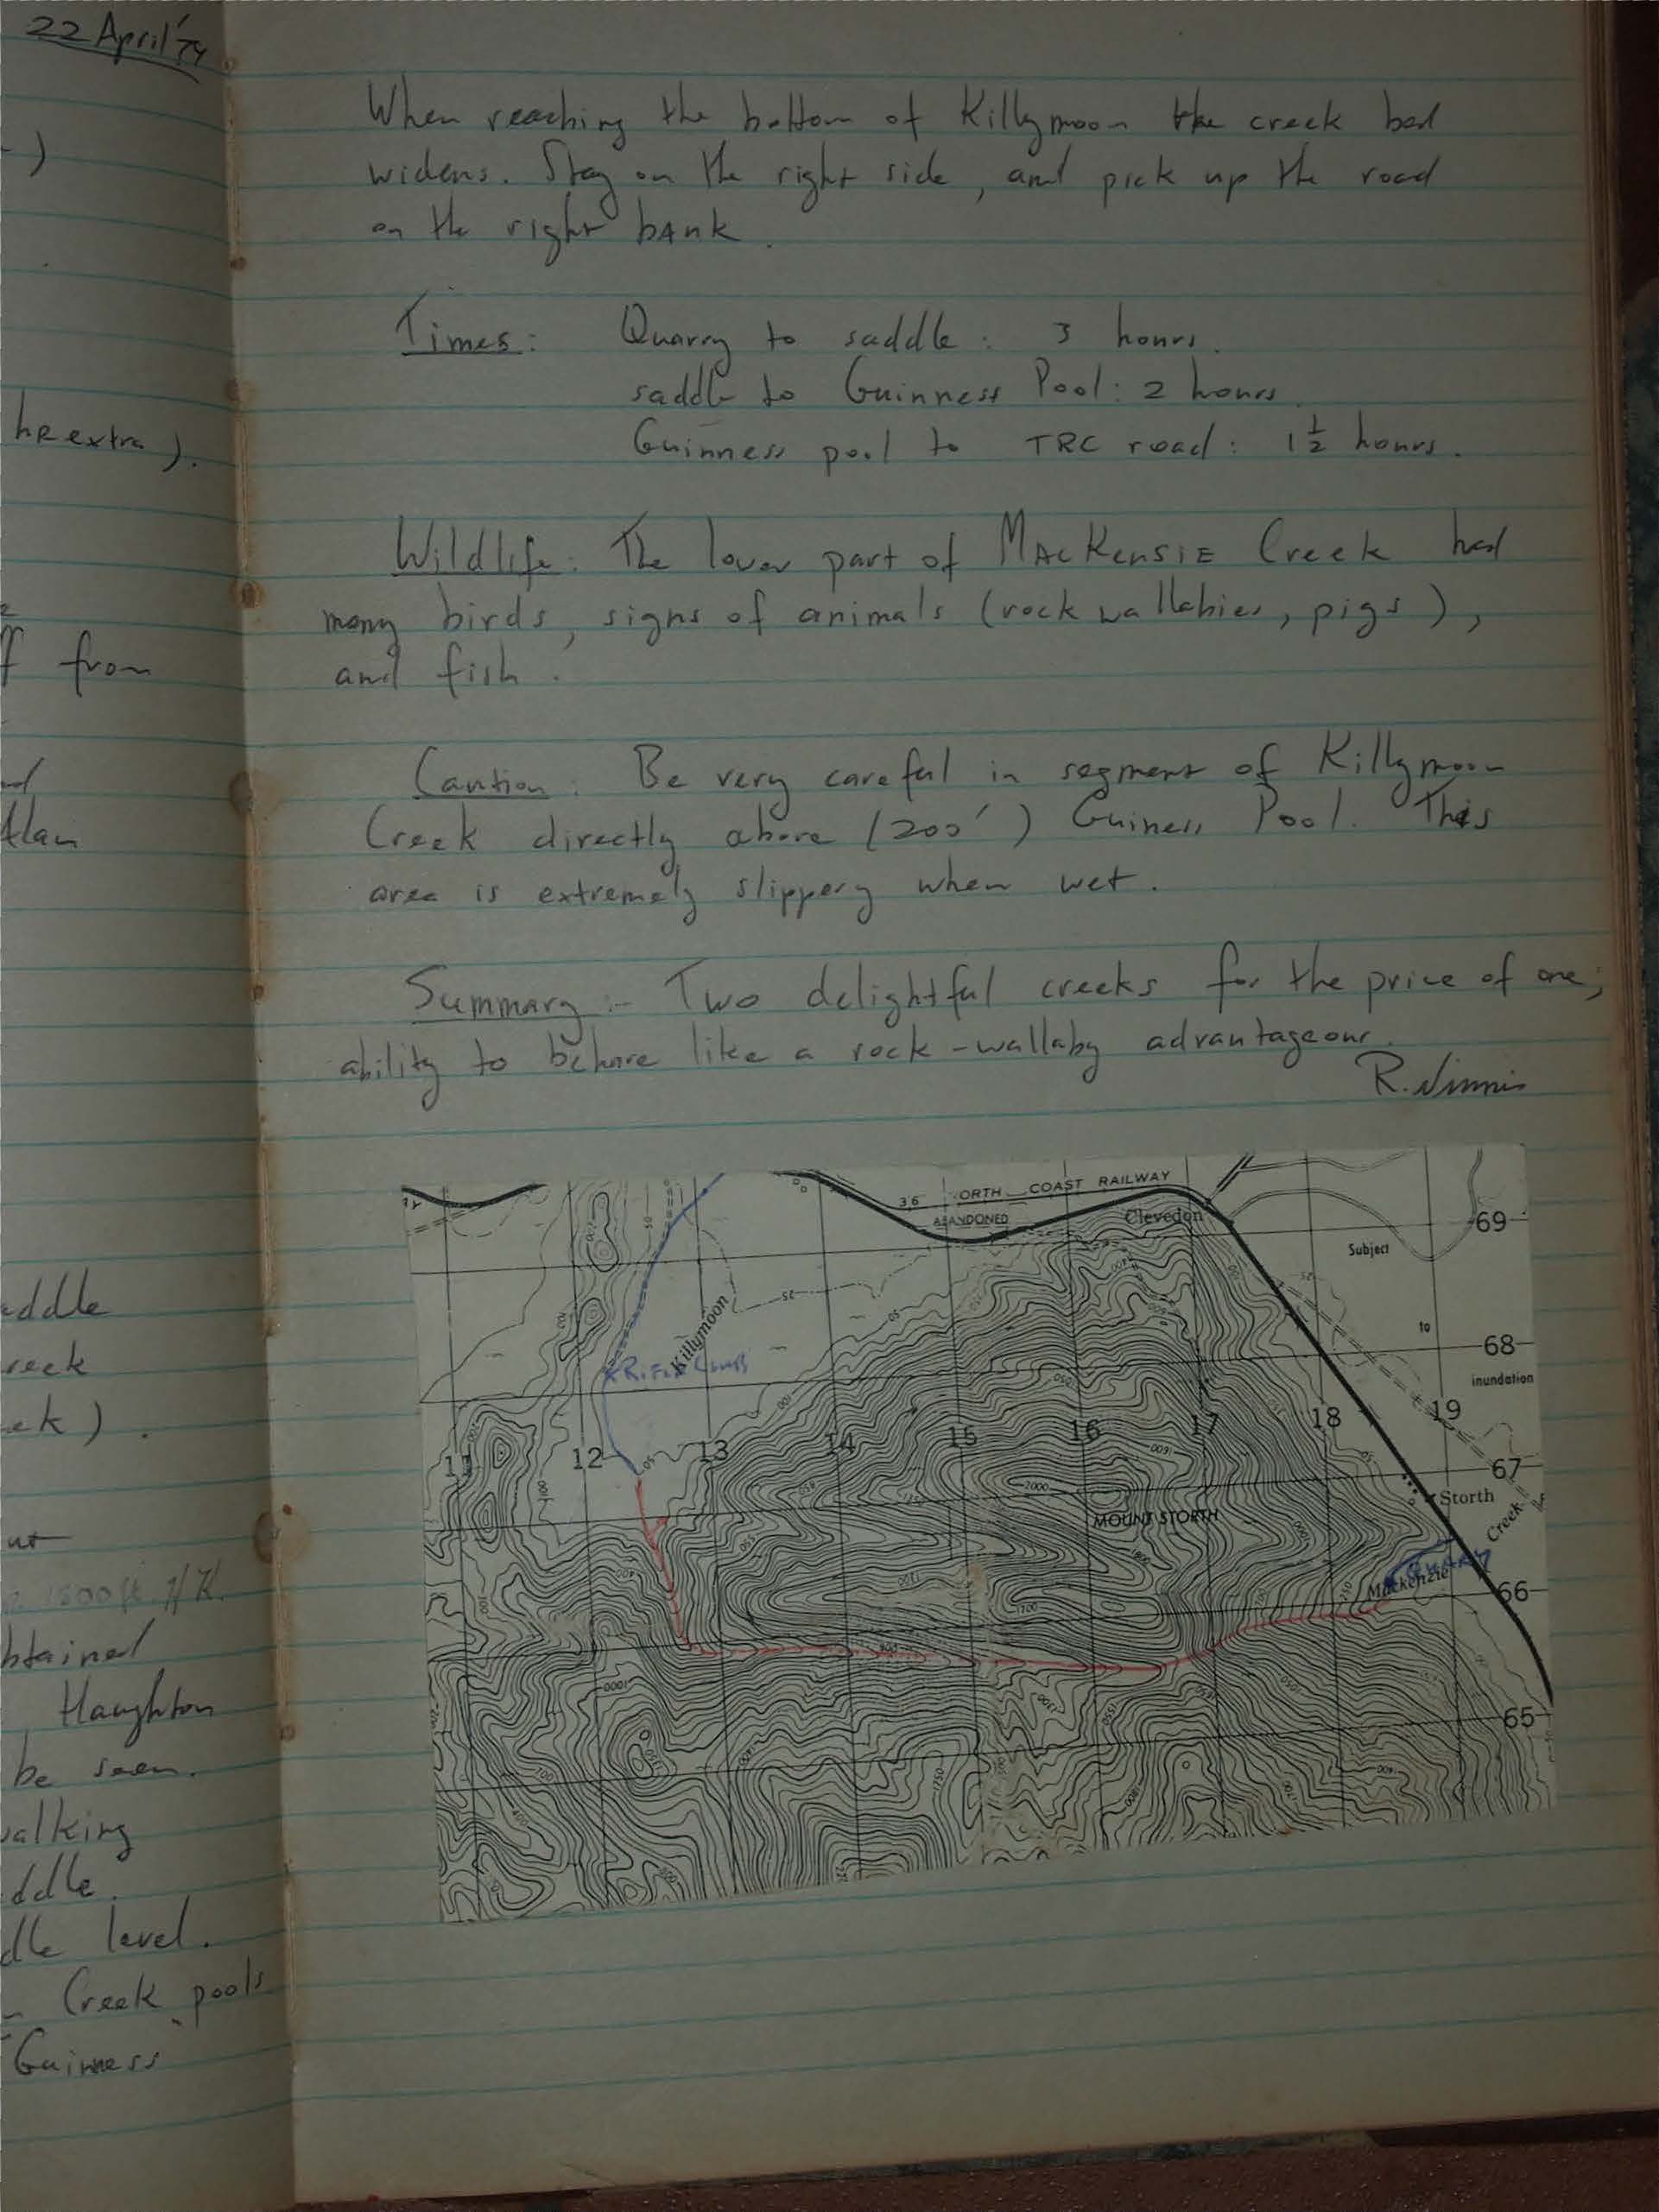 22 April '74
)
hr extra).
ff from
Alan
addle
reek
ek).
1500ft. H/K.
btained
Haughton
be seen.
walking
ddle.
dle level.
Creek pools
Guinness
When reaching the bottom of Killymoon the creek bed
widens. Stay on the right side, and pick up the road
on the right bank.
Times: Quarry to saddle: 3 hours.
saddle to Guinness Pool: 2 hours.
Guinness pool to TRC road: 1½ hours.
Wildlife: The lower part of MacKensie Creek had
many birds, signs of animals (rock wallabies, pigs),
and fish.
Caution: Be very careful in segment of Killymoon
Creek directly above (200') Guiness Pool. This
area is extremely slippery when wet.
Summary:- Two delightful creeks for the price of one;
ability to behave like a rock-wallaby advantageous.
R.
36 ORTH COAST RAILWAY
ABANDONED
Clevedon
69
Subject
to
68
inundation
Killymoon
11 12 13 14 15 16 17 18 19
67
Storth
MOUNT STORTH
2000
Creek
QUARRY
Mackenzie
66
65